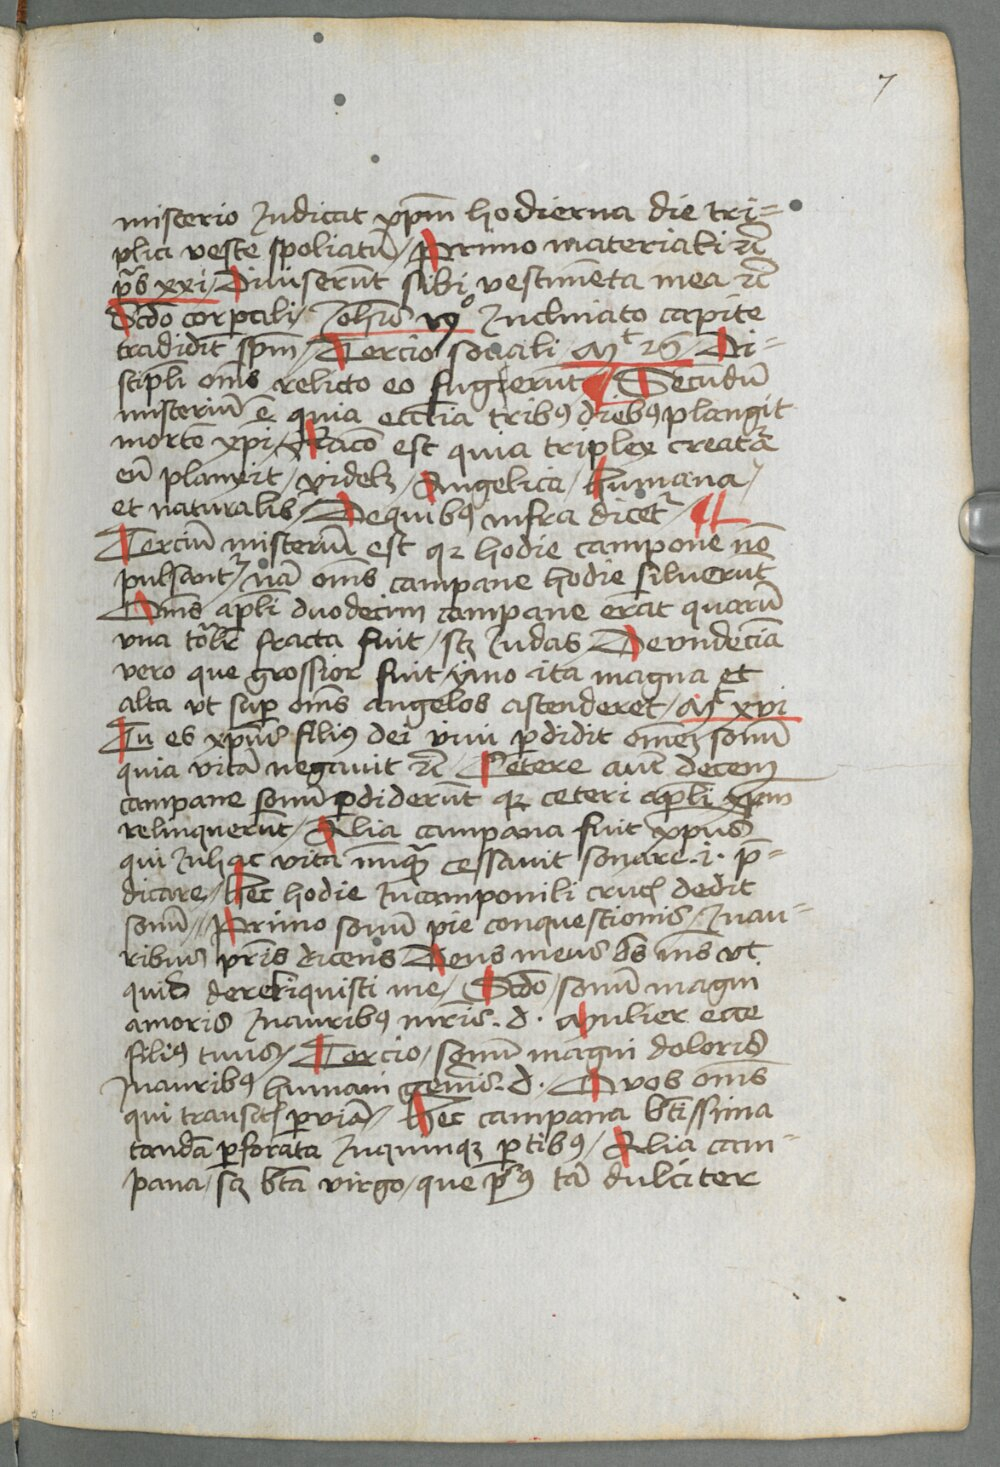 7
misterio Judicat xp̄m hodierna die tri=
plici veste spoliatū / Primo materiali rc̄
ps̄ xxi / Diuiserūt sibi vestimēta mea rc̄
Scd̄o corꝑali / Joh̄is Inclinato capite
tradidit sp̄m / Tercio sociali / Mt 26 / Di=
scipl̄i om̄s relicto eo fugierūt ¶ Secundū
misteriū ē quia eccl̄ia tribꝰ diebꝰ plangit
mortē xp̄i / Racō est quia triplex creatā
eū planxit / videlꝫ / Angelica / humana /
et naturalis / De quibꝰ infra dicet᷑ / ¶
Terciū misteriū est qꝛ hodie campane nō
pulsant᷑ / nā om̄s campane hodie siluerūt
Om̄s apl̄i duodecim campane erāt quarū
vna fracta fuit / scꝫ Judas Devndecīa
vero que grossior fuit / ymo ita magna et
alta vt suꝑ om̄s angelos ascenderet / Mt xvi
Tu es xp̄us filiꝰ dei viui ꝑdidit om̄eꝫ sonū
quia vitā negauit rc̄ / Cetere aut̄ decem
campane sonū ꝑdiderūt qꝛ ceteri apl̄i xp̄m
relinquerūt / Alia campana fuit xp̄us
qui In hac vita nūqᷓ cessauit sonare .i. p̄=
dicare / Hec hodie In campanili cruc̄ dedit
sonū // Primo sonū pie conquestionis / In au=
ribus pr̄is dicens Deus meus ds̄ ms̄ vt
quid dereliquisti me / Scd̄o / sonū magni
amoris In auribꝰ mr̄is .d. Mulier ecce
filiꝰ tuus / Tercio / sonū magni doloris
In auribꝰ humani gen̄is .d. O vos om̄s
qui transit̄ ꝑ viā / Hec campana bt̄issima
tandā ꝑforata In quinqꝫ ꝑtibꝰ / Alia cam=
pana / scꝫ bt̄a virgo / que pͥꝰ tā dulciter